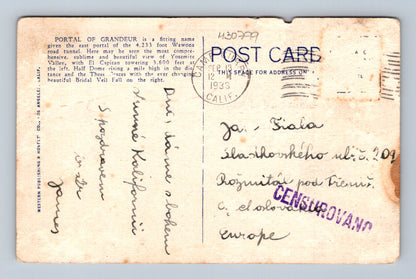 430799
PORTAL OF GRANDEUR is a fitting name
given the east portal of the 4,233 foot Wawona
road tunnel. Here may be seen the most compre-
hensive, sublime and beautiful view of Yosemite
Valley, with El Capitan towering 3,600 feet on
the left, Half Dome rising a mile high in the dis-
tance and the Three Graces with the ever changing
beautiful Bridal Veil Fall on the right.
WESTERN PUBLISHING & NOVELTY CO., LOS ANGELES, CALIF.
POST CARD
THIS SPACE FOR ADDRESS ON
SEP 13
12 M
1933
CALIF.
dáme s bohem
Kalifornii
S pozdravem
James
Jar. Fiala
Slavíkovského ul. č. 209
Rožmitál pod Třemš.
Czechoslovakia
Europe
CENSUROVANO